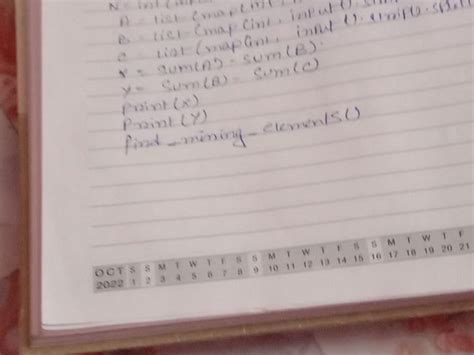 N = int(
A = list(map(int, input().
B = list(map(int, input().strip().
C = list(map(int, input().strip().split
X = sum(A) - sum(B)
Y = sum(B) - sum(C)
print(X)
print(Y)
find_mining_elements()
OCT S S M T W T F S S M T W T F S S M T W T F
2022 1 2 3 4 5 6 7 8 9 10 11 12 13 14 15 16 17 18 19 20 21